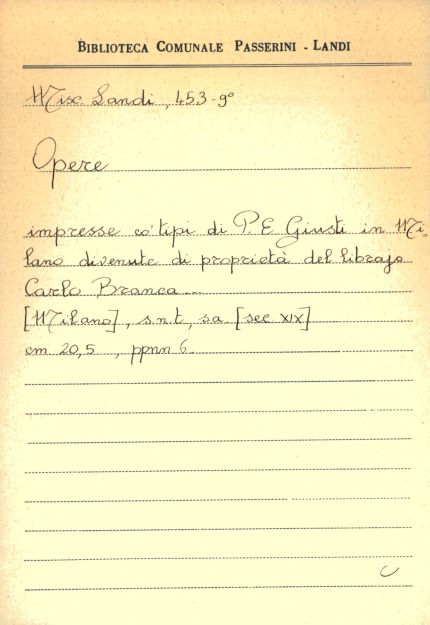 BIBLIOTECA COMUNALE PASSERINI - LANDI
Misc Landi, 453-9°
Opere
impresse co' tipi di P. E. Giusti in Mi-
lano divenute di proprietà del librajo
Carlo Branca...
[Milano], s.n.t, s.a. [sec XIX]
cm 20,5 , ppnn 6.
C